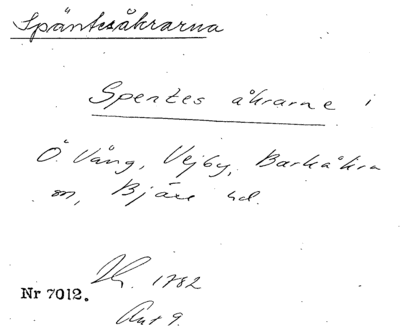 Späntsåkrarna
Spentes åkrarne i
Ö. Vång, Vejby, Barkåkra
sn, Bjäre hd.
1782
Nr 7012.
Akt 9.